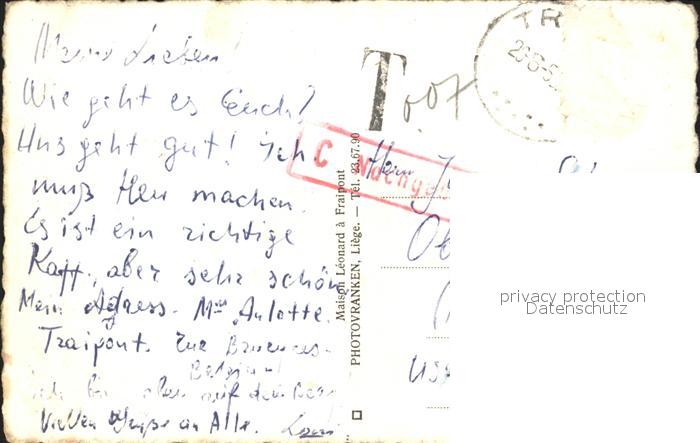 Meine Lieben!
Wie geht es Euch?
Uns geht gut! Ich
muß Heu machen.
Es ist ein richtige
Kaff, aber sehr schön
Mein Adress. Mme Aulotte.
Fraipont. Rue
Belgien!
ich bin aber auf dem
Vielen Grüße an Alle.
Maison Léonard à Fraipont
PHOTOVRANKEN, Liège. — Tél. 23.67.90
T 0.07
TR
C Nachgeb
Herrn
privacy protection
Datenschutz